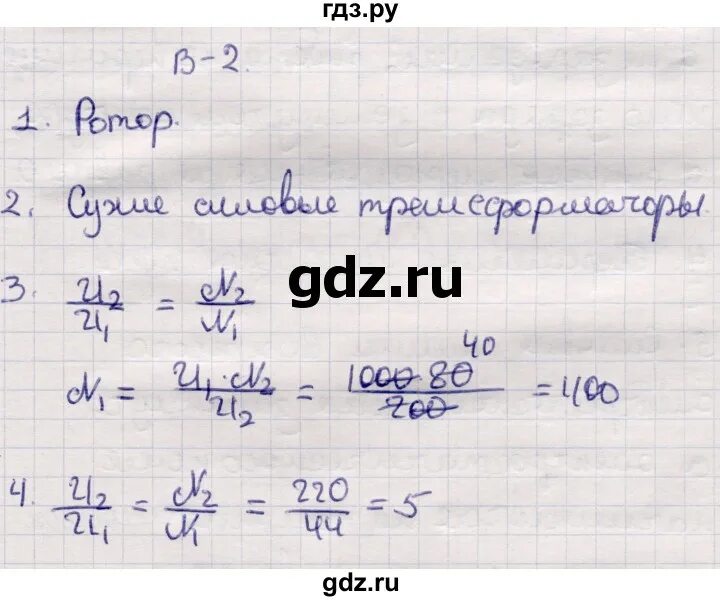 гдз.ру
В-2.
1. Ротор.
2. Сухие силовые трансформаторы.
gdz.ru
3. U₂/U₁ = N₂/N₁
N₁ = U₁·N₂/U₂ = 1000·80/200 = 400
40
4. U₂/U₁ = N₂/N₁ = 220/44 = 5
gdz.ru